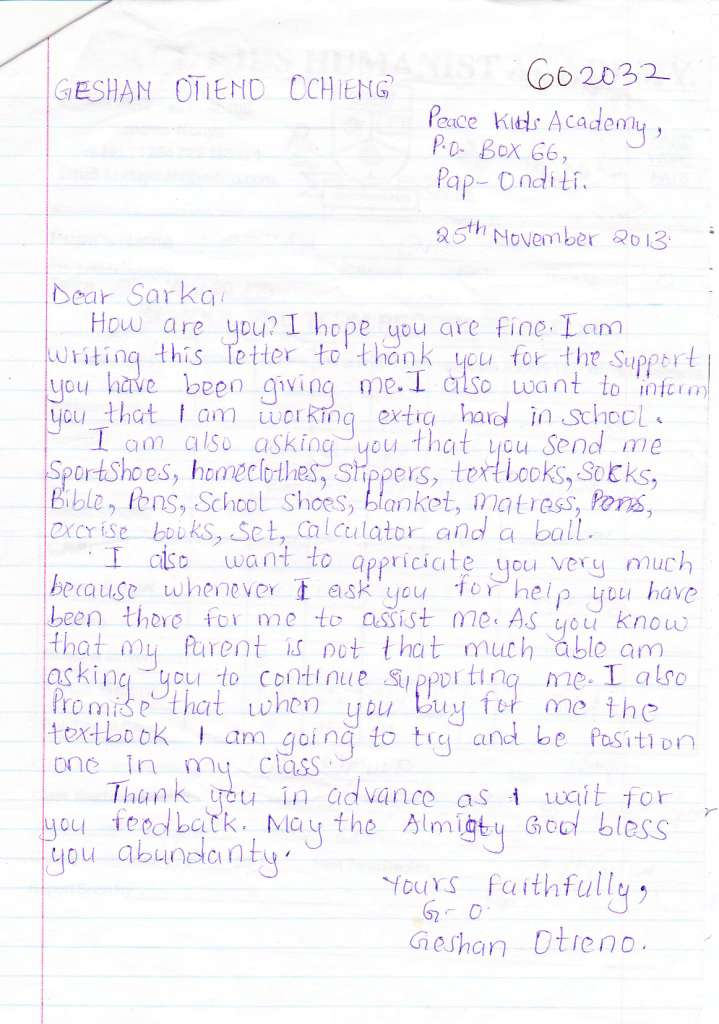 GESHAN OTIENO OCHIENG
602032
Peace Kids Academy,
P.O. BOX 66,
Pap-Onditi.
25th November 2013.
Dear Sarka,
How are you? I hope you are fine. I am
writing this letter to thank you for the support
you have been giving me. I also want to inform
you that I am working extra hard in school.
I am also asking you that you send me
Sportshoes, homeclothes, Slippers, textbooks, Socks,
Bible, Pens, School shoes, blanket, matress, Pens,
excrise books, Set, Calculator and a ball.
I also want to appriciate you very much
because whenever I ask you for help you have
been there for me to assist me. As you know
that my Parent is not that much able am
asking you to continue supporting me. I also
Promise that when you buy for me the
textbook I am going to try and be Position
one in my class.
Thank you in advance as I wait for
you feedback. May the Almigty God bless
you abundanty.
Yours faithfully,
G-O.
Geshan Otieno.